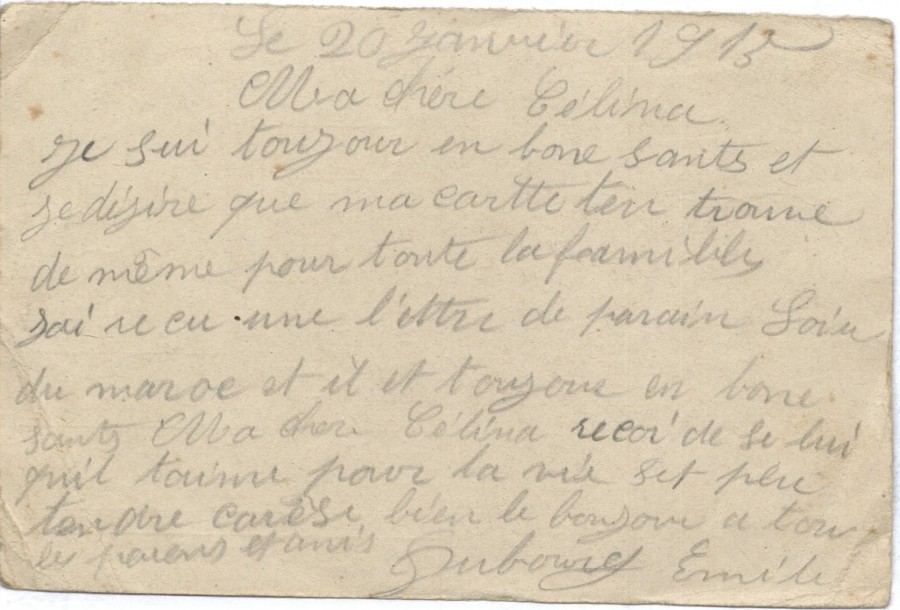 Le 20 janvier 1915
Ma chére Célina
je sui toujour en bone santé et
je désire que ma cartte ten trouve
de même pour toute la famille
jai recu une l'ettre de parain
du maroc et il et toujour en bone
santé Ma chere Célina recoi de se lui
quil taime pour la vie set plu
tendre carése bien le bonjour a tou
les parens et amis
Emile